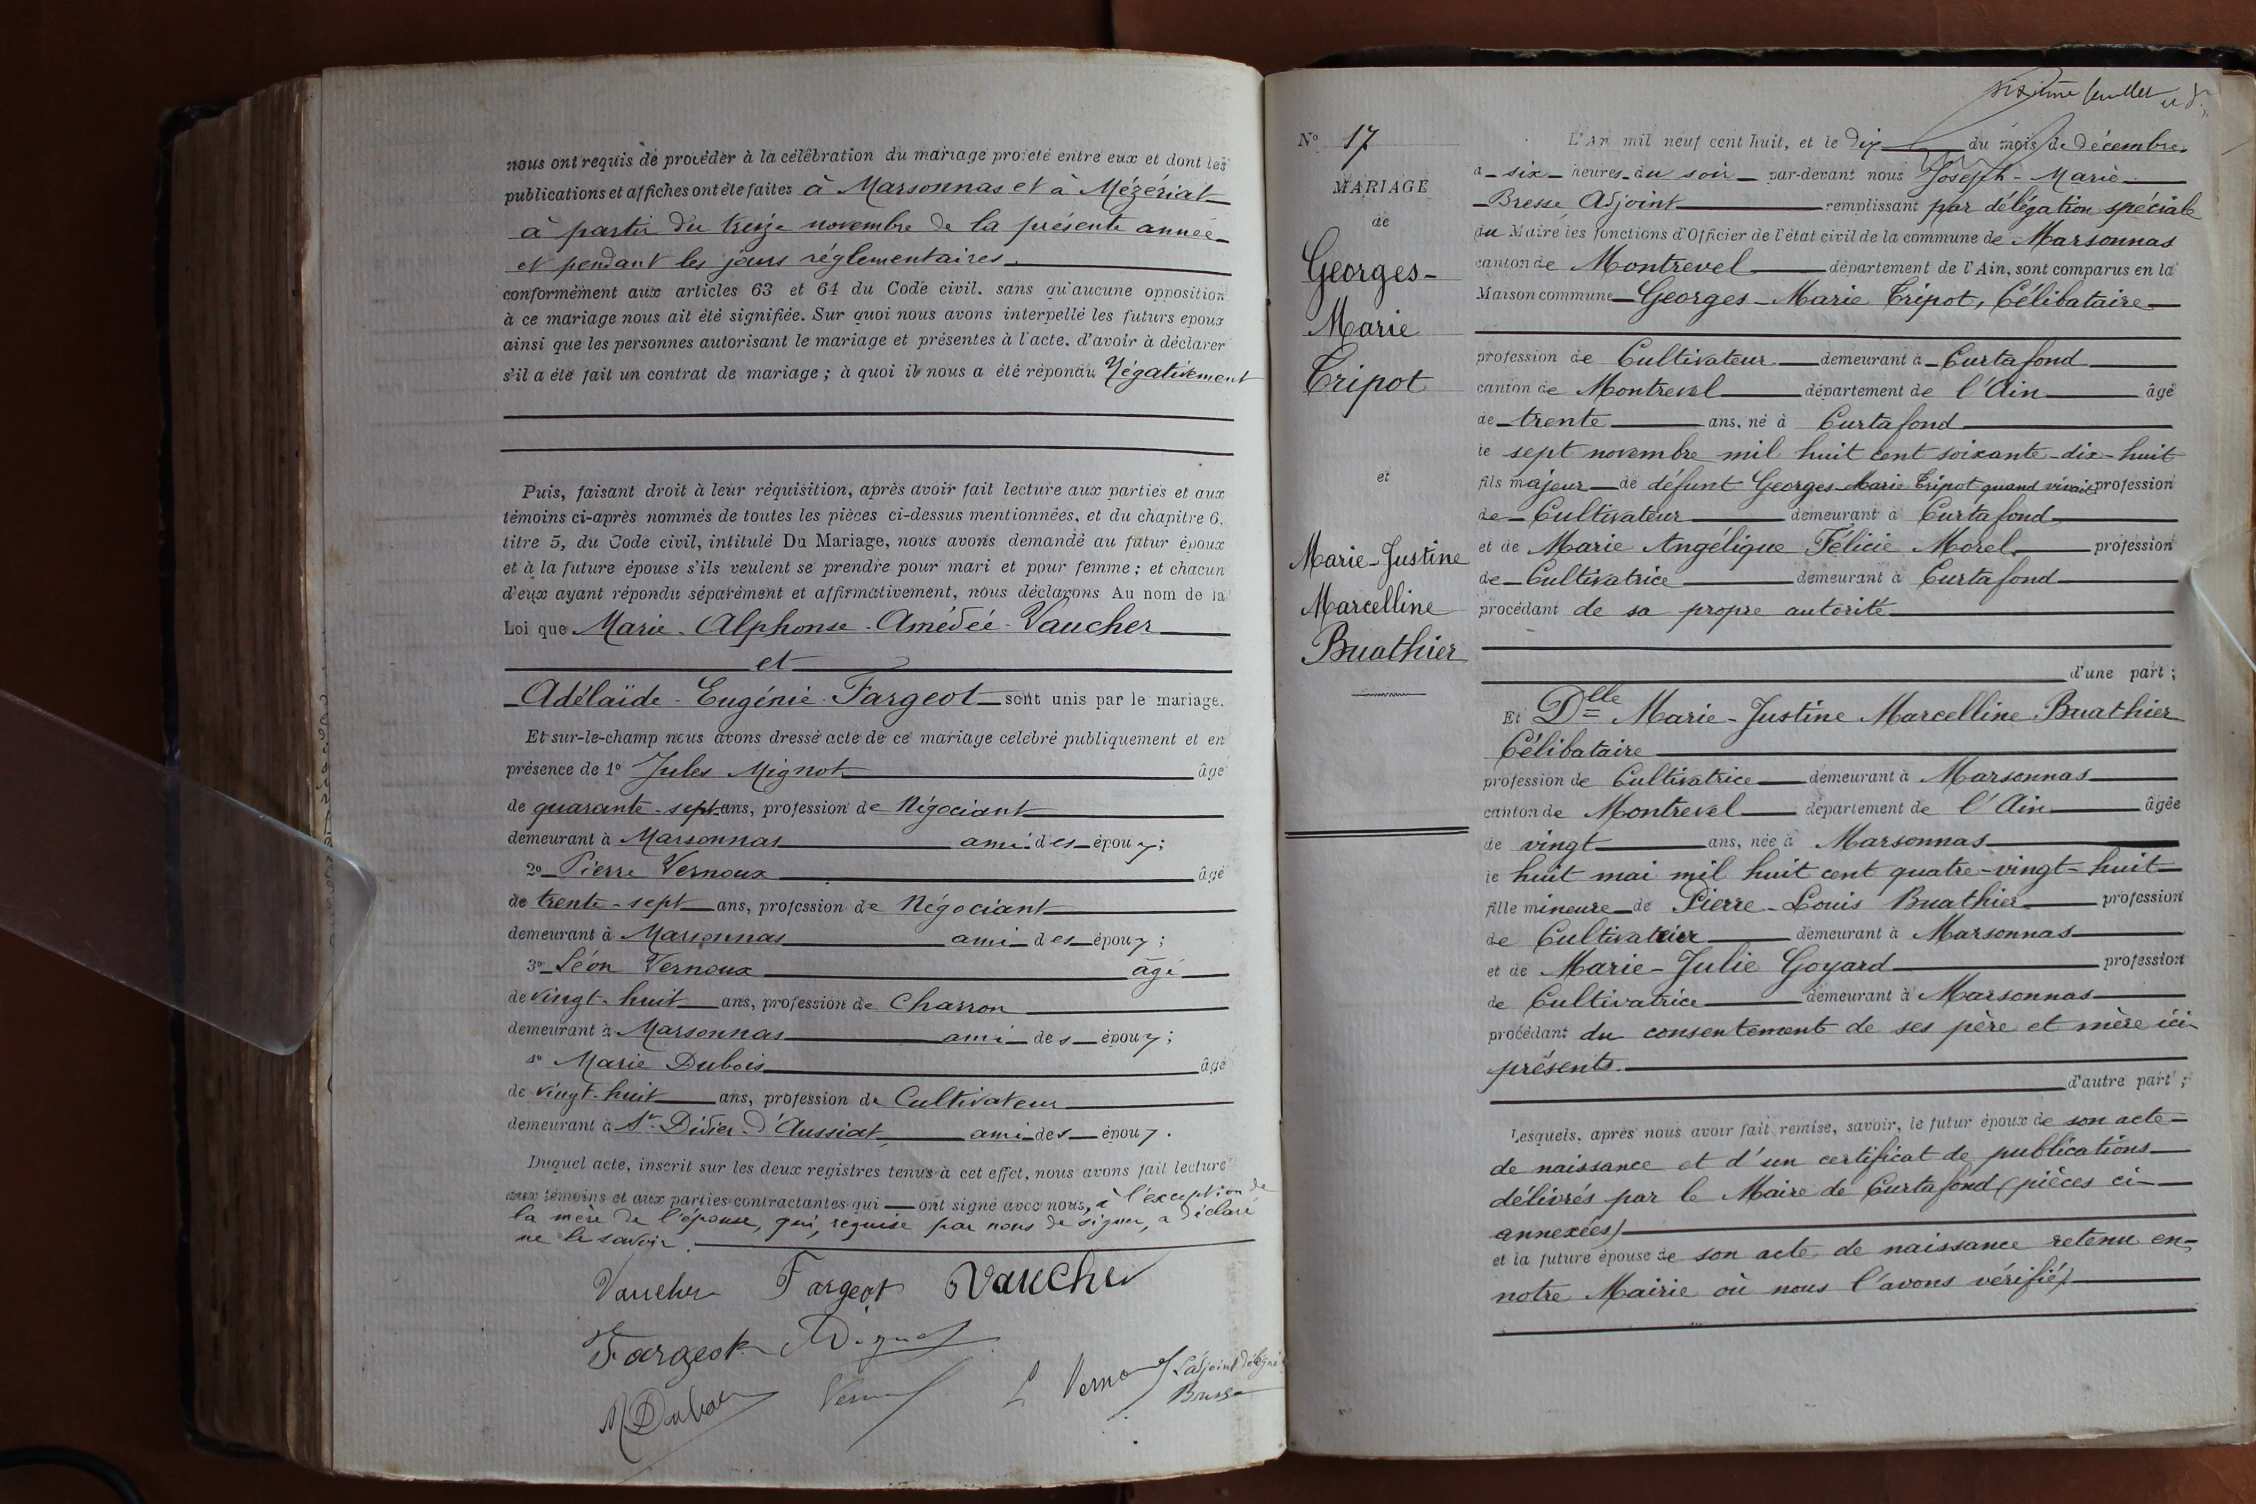 nous ont requis de procéder à la célébration du mariage projeté entre eux et dont les
publications et affiches ont été faites à Marsonnas et à Mézériat
à partir du treize novembre de la présente année
et pendant les jours réglementaires.
conformément aux articles 63 et 64 du Code civil. sans qu'aucune opposition
à ce mariage nous ait été signifiée. Sur quoi nous avons interpellé les futurs epoux
ainsi que les personnes autorisant le mariage et présentes à l'acte. d'avoir à déclarer
s'il a été fait un contrat de mariage ; à quoi il nous a été répondu Négativement
Puis, faisant droit à leur réquisition, après avoir fait lecture aux parties et aux
témoins ci-après nommés de toutes les pièces ci-dessus mentionnées, et du chapitre 6.
titre 5, du Code civil, intitulé Du Mariage, nous avons demandé au futur époux
et à la future épouse s'ils veulent se prendre pour mari et pour femme ; et chacun
d'eux ayant répondu séparément et affirmativement, nous déclarons Au nom de la
Loi que Marie - Alphonse - Amédée - Vaucher
et
Adélaïde - Eugénie - Fargeot sont unis par le mariage.
Et sur-le-champ nous avons dressé acte de ce mariage celebré publiquement et en
présence de 1º Jules Mignot âgé
de quarante-sept ans, profession de Négociant
demeurant à Marsonnas ami des époux ;
2º Pierre Vernoux âgé
de trente-sept ans, profession de Négociant
demeurant à Marsonnas ami des époux ;
3º Léon Vernoux âgé
de vingt-huit ans, profession de Charron
demeurant à Marsonnas ami des époux ;
4º Marie Dubois âgé
de vingt-huit ans, profession de Cultivateur
demeurant à St Didier d'Aussiat ami des époux.
Duquel acte, inscrit sur les deux registres tenus à cet effet, nous avons fait lecture
aux témoins et aux parties contractantes qui ont signé avec nous, à l'exception de
la mère de l'épouse, qui, requise par nous de signer, a déclaré
ne le savoir.
Vaucher Fargeot Vaucher
Fargeot Mignot
M Dubois Vernoux L Vernoux L'adjoint délégué
Bresse
sixième feuillet
Nº 17
MARIAGE
de
Georges-
Marie
Tripot
et
Marie-Justine
Marcelline
Buathier
L'An mil neuf cent huit, et le dix du mois de décembre
à six heures du soir par-devant nous Joseph - Marie
Bresse Adjoint remplissant par délégation spéciale
du Maire les fonctions d'Officier de l'état civil de la commune de Marsonnas
canton de Montrevel département de l'Ain, sont comparus en la
Maison commune Georges - Marie Tripot, Célibataire
profession de Cultivateur demeurant à Curtafond
canton de Montrevel département de l'Ain âgé
de trente ans, né à Curtafond
le sept novembre mil huit cent soixante-dix-huit
fils majeur de défunt Georges-Marie Tripot quand vivait profession
de Cultivateur demeurant à Curtafond
et de Marie Angélique Félicie Morel profession
de Cultivatrice demeurant à Curtafond
procédant de sa propre autorité
d'une part ;
Et Dlle Marie-Justine Marcelline Buathier
Célibataire
profession de Cultivatrice demeurant à Marsonnas
canton de Montrevel département de l'Ain âgée
de vingt ans, née à Marsonnas
le huit mai mil huit cent quatre-vingt-huit
fille mineure de Pierre-Louis Buathier profession
de Cultivateur demeurant à Marsonnas
et de Marie-Julie Goyard profession
de Cultivatrice demeurant à Marsonnas
procédant du consentement de ses père et mère ici
présents.
d'autre part ;
Lesquels, après nous avoir fait remise, savoir, le futur époux de son acte
de naissance et d'un certificat de publications
délivrés par le Maire de Curtafond (pièces ci-
annexées)
et la future épouse de son acte de naissance retenu en
notre Mairie où nous l'avons vérifié)